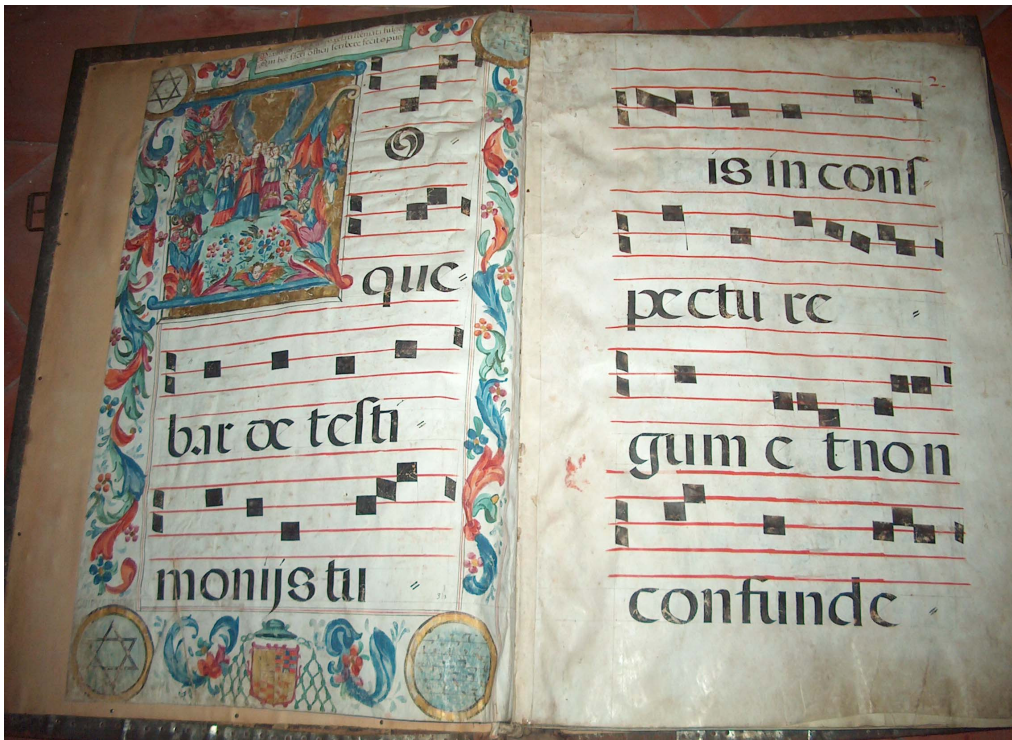 2.
O
que
bar de teſti
monijs tu
is in conſ
pectu re
gum e t non
confunde